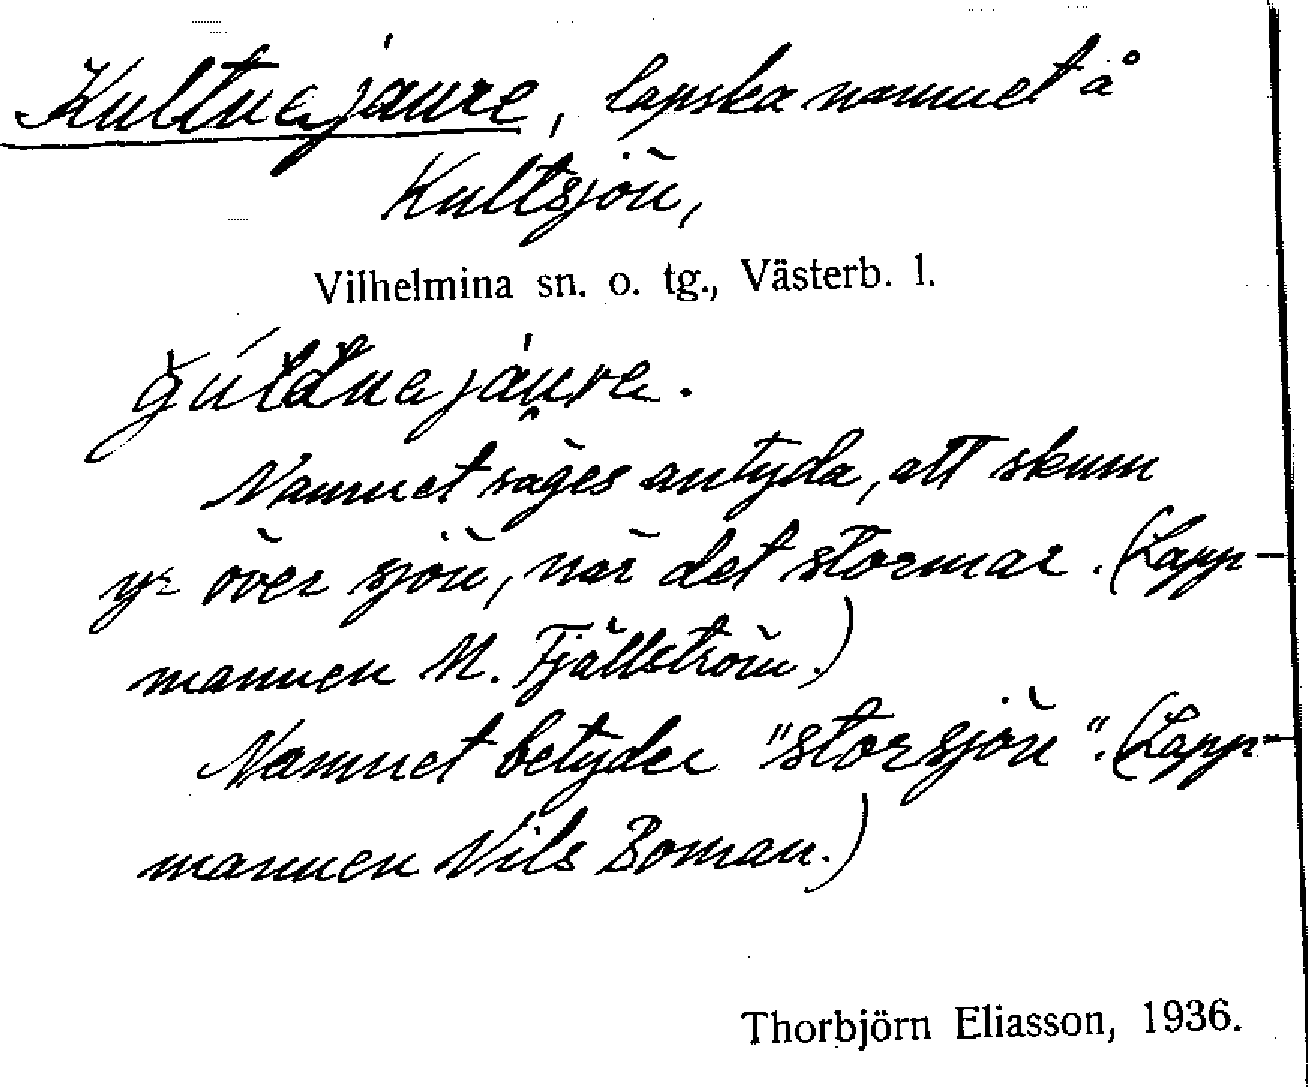 Kultuejaure, lapska namnet å
Kultsjön,
Vilhelmina sn. o. tg., Västerb. l.
Namnet säges antyda, att skum
yr över sjön, när det stormar. (Lapp-
mannen M. Fjällström.)
Namnet betyder "storsjön". (Lapp-
mannen Nils Boman.)
Thorbjörn Eliasson, 1936.